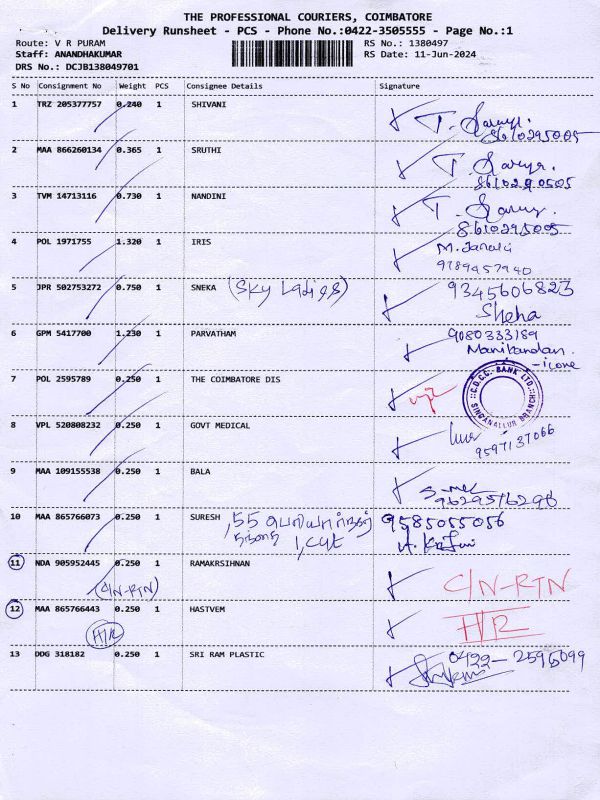 THE PROFESSIONAL COURIERS, COIMBATORE
Delivery Runsheet - PCS - Phone No.:0422-3505555 - Page No.:1
Route: V R PURAM RS No.: 1380497
Staff: ANANDHAKUMAR RS Date: 11-Jun-2024
DRS No.: DCJB138049701
S No Consignment No Weight PCS Consignee Details Signature
1 TRZ 205377757 0.240 1 SHIVANI
8610295005
2 MAA 866260134 0.365 1 SRUTHI
8610290505
3 TVM 14713116 0.730 1 NANDINI
8610295005
4 POL 1971755 1.320 1 IRIS M. Janaki
9789457940
5 JPR 502753272 0.750 1 SNEKA 9345606823
Sneha
6 GPM 5417700 1.230 1 PARVATHAM 9080333189
Manikandan
- icone
7 POL 2595789 0.250 1 THE COIMBATORE DIS C.D.C.C. BANK LTD.
SINGANALLUR BRANCH
8 VPL 520808232 0.250 1 GOVT MEDICAL
9597137066
9 MAA 109155538 0.250 1 BALA
9629576296
10 MAA 865766073 0.250 1 SURESH , 55 9585055056
11 NDA 905952445 0.250 1 RAMAKRSIHNAN C/N-RTN
(C/N-RTN)
12 MAA 865766443 0.250 1 HASTVEM H/R
H/R
13 DDG 318182 0.250 1 SRI RAM PLASTIC 0422-2595099